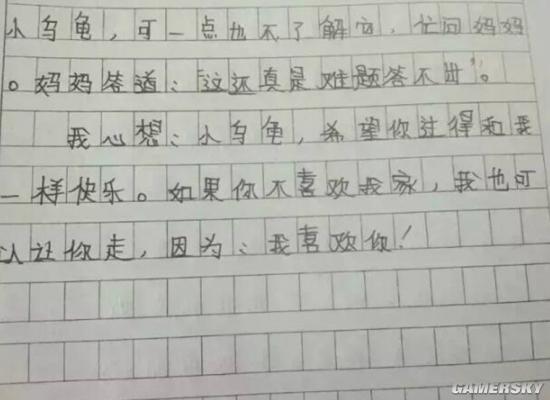 小乌龟，可一点也不了解它，忙问妈妈
。妈妈答道：“这还真是难题答不出”。
我心想：小乌龟，希望你过得和我
一样快乐。如果你不喜欢我家，我也可
以让你走，因为：我喜欢你！
GAMERSKY